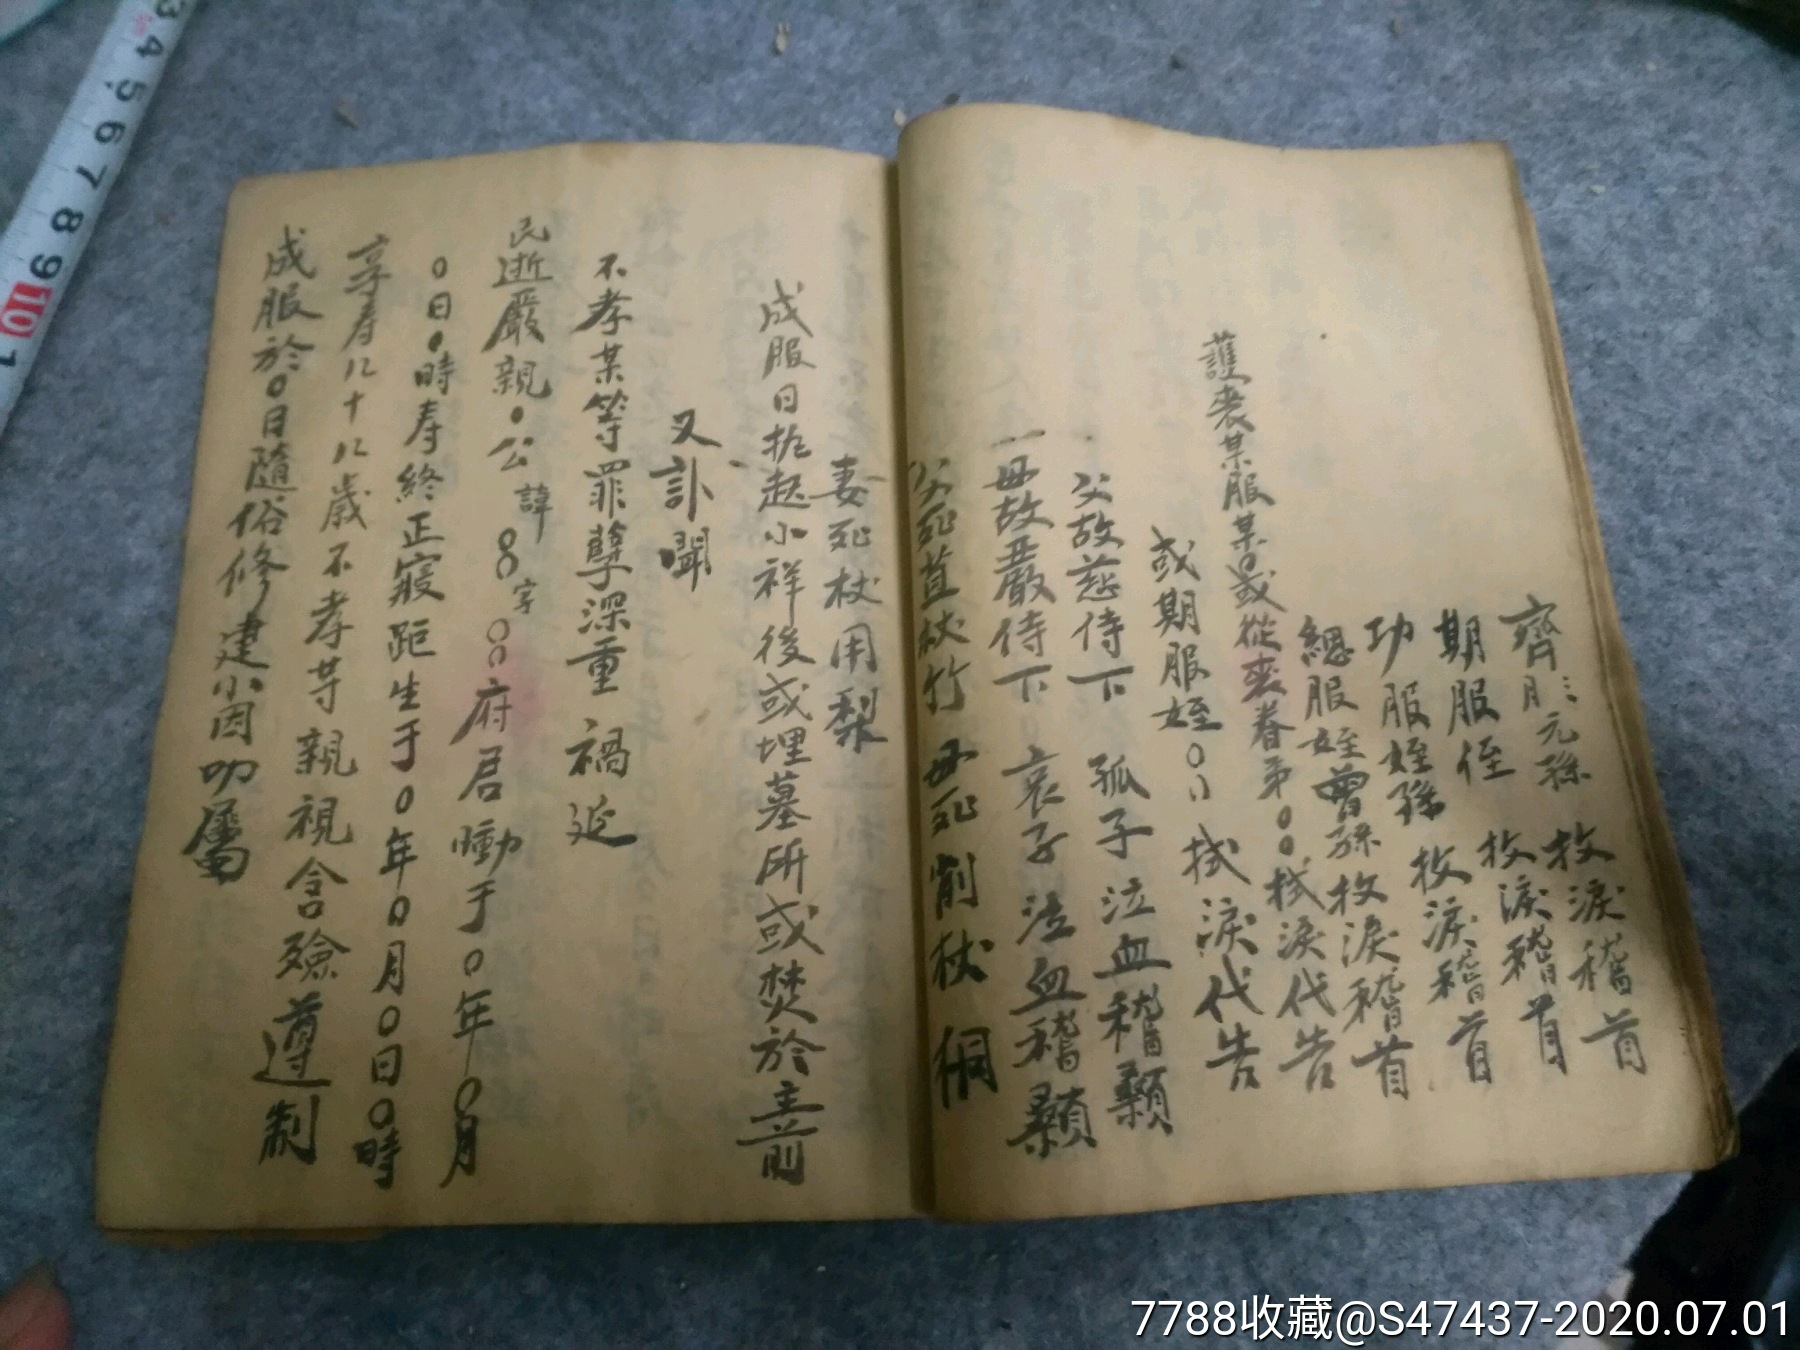 齊 元孫 抆淚稽首
期服侄 抆淚稽首
功服姪孫 抆淚稽首
緦服姪曾孫抆淚稽首
護喪某服某〇或從喪眷弟〇〇拭淚代告
或期服姪〇〇拭淚代告
父故慈侍下 孤子泣血稽顙
一母故嚴侍下 哀子泣血稽顙
父死苴杖竹 母死削杖桐
妻死杖用梨
成服日扡起小祥後或埋墓所或焚於主前
又訃聞
不孝某等罪孽深重禍延
民逝嚴親〇公諱〇〇字〇〇府君慟于〇年〇月
〇日〇時寿終正寢距生于〇年〇月〇日〇時
享寿几十几歲不孝等親視含殮遵制
成服於〇日隨俗修建小因叨屬
3 4 5 6 7 8 9 10 1
7788收藏@S47437-2020.07.01